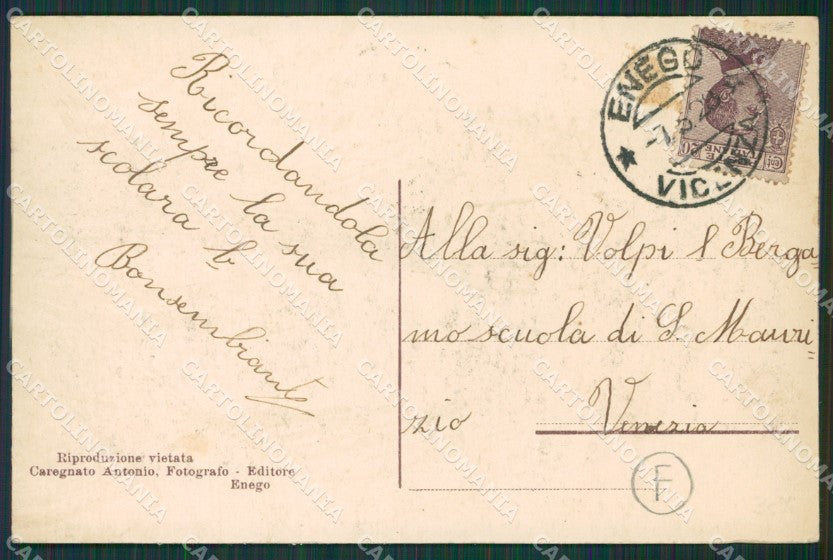 Ricordandola
sempre la sua
scolara b.
Bonsembiante
Riproduzione vietata
Caregnato Antonio, Fotografo - Editore
Enego
ENEGO
VICENZA
20
Alla sig: Volpi Berga=
mo scuola di S. Mauri=
zio Venezia
F
CARTOLINOMANIA